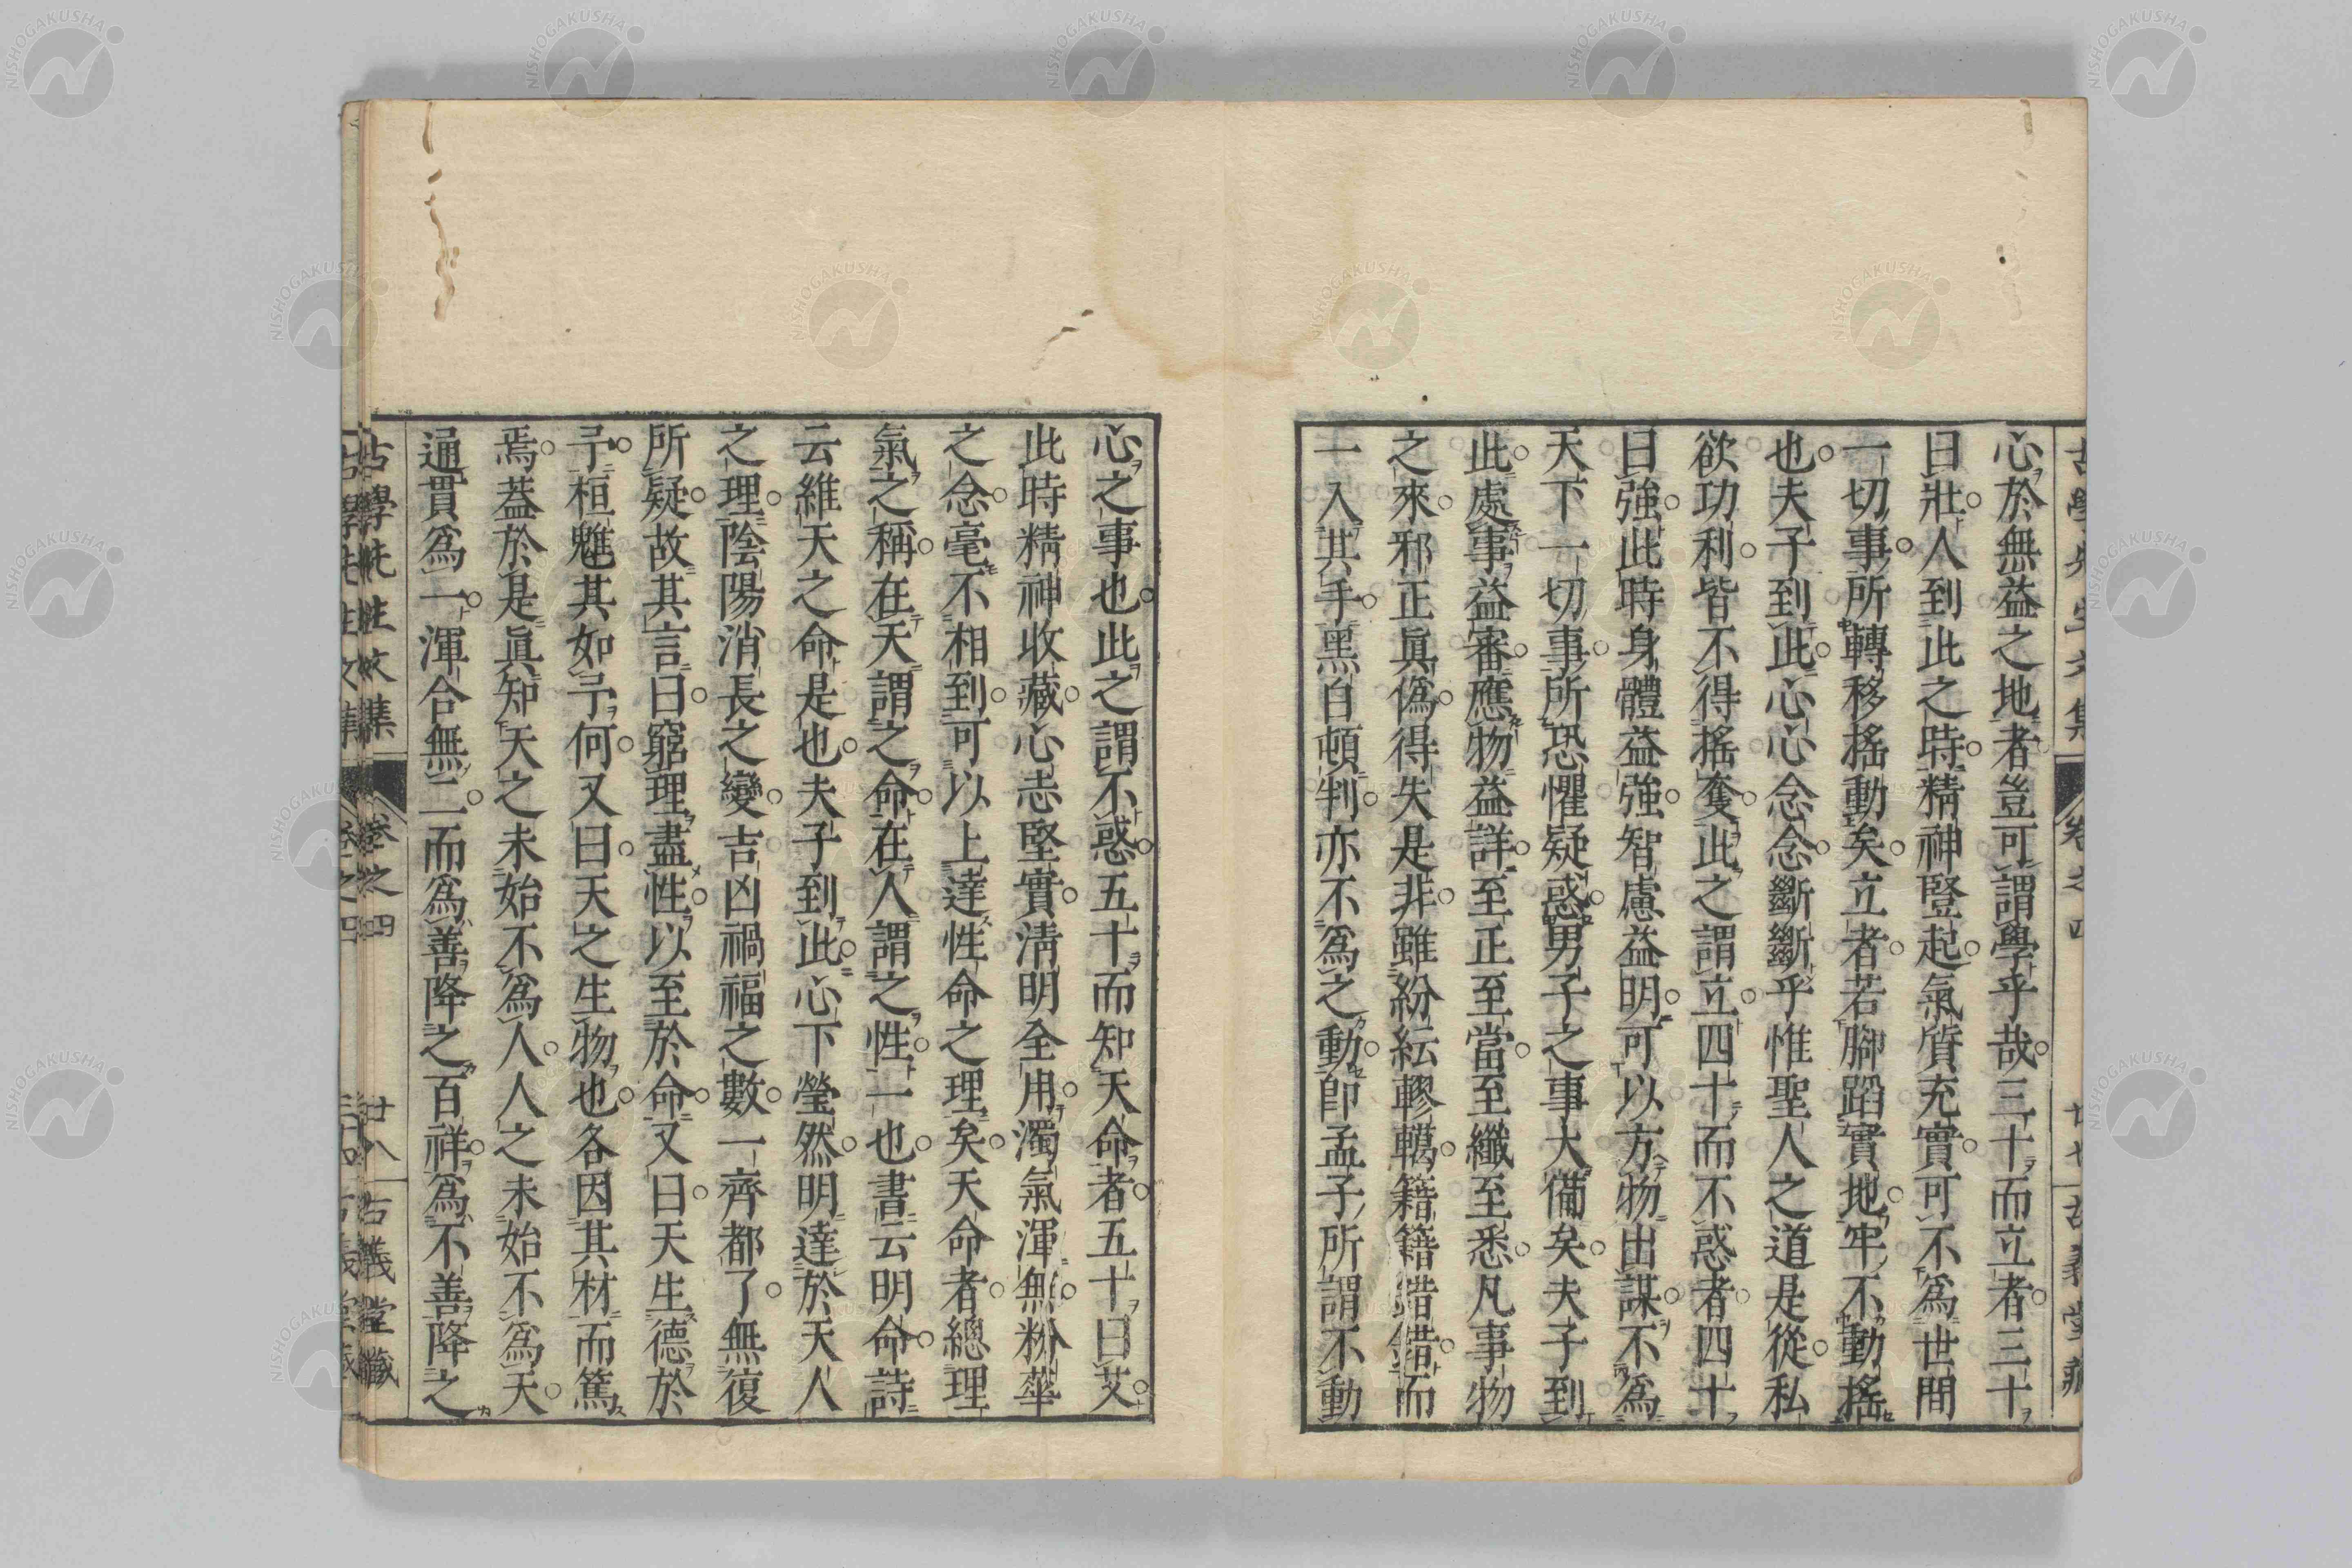 心於無益之地者豈可謂學乎哉三十而立者三十
曰壯人到此之時精神豎起氣質充實可不為世間
一切事所轉移搖動矣立者若腳蹈實地牢不動搖
也夫子到此心心念念斷斷乎惟聖人之道是從私
欲功利皆不得搖奪此之謂立四十而不惑者四十
曰強此時身體益強智慮益明可以方物出謀不為
天下一切事所恐懼疑惑男子之事大備矣夫子到
此處事益審應物益詳至正至當至纖至悉凡事物
之來邪正真偽得失是非雖紛紜轇轕籍籍錯錯而
一入其手黑白頓判亦不為之動即孟子所謂不動
心之事也此之謂不惑五十而知天命者五十曰艾
此時精神收藏心志堅實淸明全用濁氣渾無粉華
之念毫不相到可以上達性命之理矣天命者總理
氣之稱在天謂之命在人謂之性一也書云明命詩
云維天之命是也夫子到此心下瑩然明達於天人
之理陰陽消長之變吉凶禍福之數一齊都了無復
所疑故其言曰窮理盡性以至於命又曰天生德於
予桓魋其如予何又曰天之生物也各因其材而篤
焉蓋於是眞知天之未始不為人人之未始不為天
通貫爲一渾合無二而爲善降之百祥爲不善降之
古學先生文集 卷之四 廿八 古義堂藏